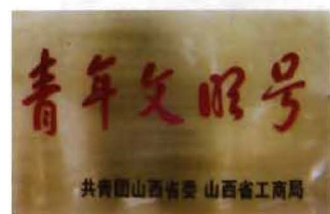 青年文明号
共青团山西省委 山西省工商局